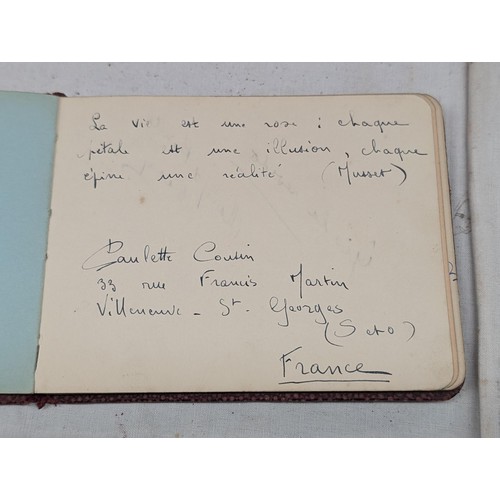 La vie est une rose : chaque
pétale est une illusion, chaque
épine une réalité (Musset)
Paulette Cousin
33 rue Francis Martin
Villeneuve - St. Georges
(S et O)
France